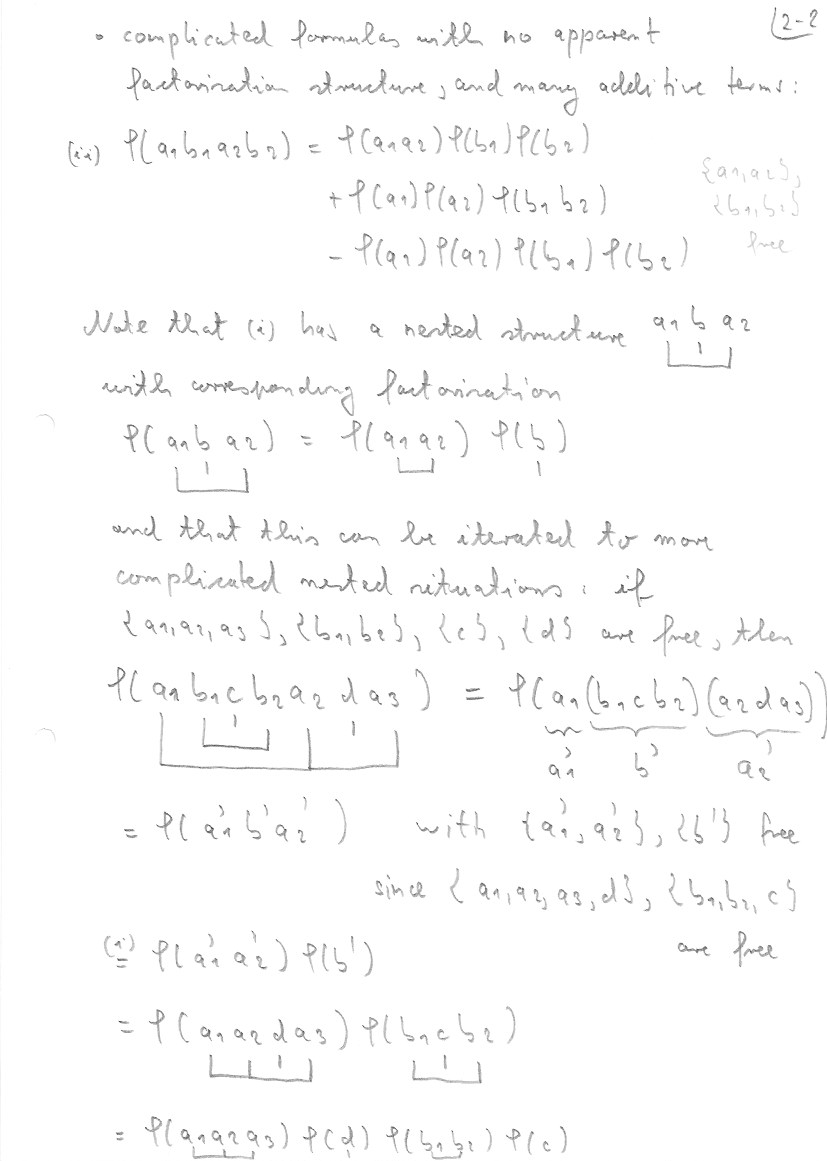 2-2
• complicated formulas with no apparent
factorization structure, and many additive terms:
(ii) φ(a₁b₁a₂b₂) = φ(a₁a₂) φ(b₁) φ(b₂)
+ φ(a₁) φ(a₂) φ(b₁b₂) {a₁,a₂},
{b₁,b₂}
- φ(a₁) φ(a₂) φ(b₁) φ(b₂) free
Note that (i) has a nested structure a₁ b a₂
with corresponding factorization
φ(a₁ b a₂) = φ(a₁a₂) φ(b)
and that this can be iterated to more
complicated nested situations: if
{a₁,a₂,a₃}, {b₁,b₂}, {c}, {d} are free, then
φ(a₁b₁cb₂a₂da₃) = φ(a₁(b₁cb₂)(a₂da₃))
a₁' b' a₂'
= φ(a₁'b'a₂') with {a₁',a₂'}, {b'} free
since {a₁,a₂,a₃,d}, {b₁,b₂,c}
are free
(i)
= φ(a₁'a₂') φ(b')
= φ(a₁a₂da₃) φ(b₁cb₂)
= φ(a₁a₂a₃) φ(d) φ(b₁b₂) φ(c)